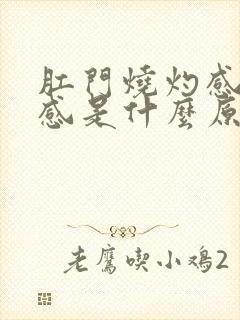 肛門燒灼感
感是什麼原
老鷹喫小鸡2